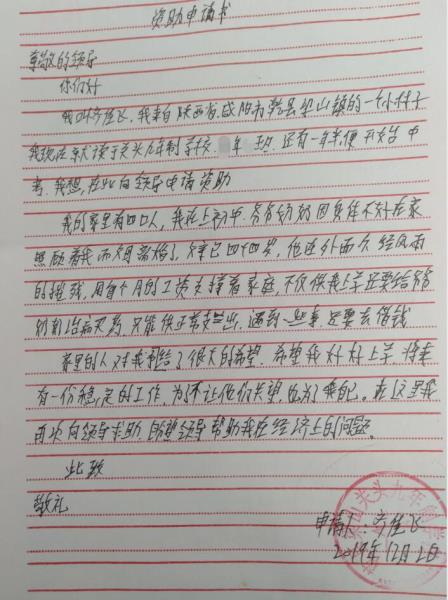 资助申请书
尊敬的领导
你们好
我叫齐佳飞,我来自陕西省咸阳市乾县梁山镇的一个小村子
我现在就读于关头九年制学校 年 班 还有一年半便开始中
考,我想,在此向领导申请资助
我的家里有四口人,我在上初中,爷爷奶奶因身体不好在家
照顾着我 而父母离婚了,父亲已四十四岁,他在外面久经风雨
的摧残,用每个月的工资支撑着家庭,不仅供我上学还要给爷
爷奶奶治病买药 只能供正常支出,遇到一些事还要去借钱
家里的人对我寄托了很大的希望,希望我好好上学,将来
有一份稳定的工作,为了不让他们失望,也为了我自己。在这里我
再次向领导求助,盼望领导帮助我在经济上的问题。
此致
敬礼
申请人:齐佳飞
2019年12月2日
梁山关头九年制学校